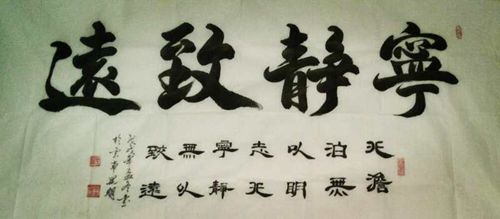 寧靜致遠
非澹
泊無
以明
志非
寧靜
無以
致遠